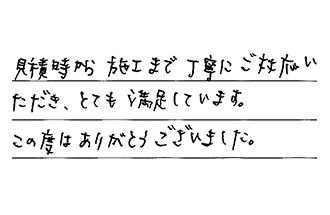 見積時から施工まで丁寧にご対応い
ただき、とても満足しています。
この度はありがとうございました。